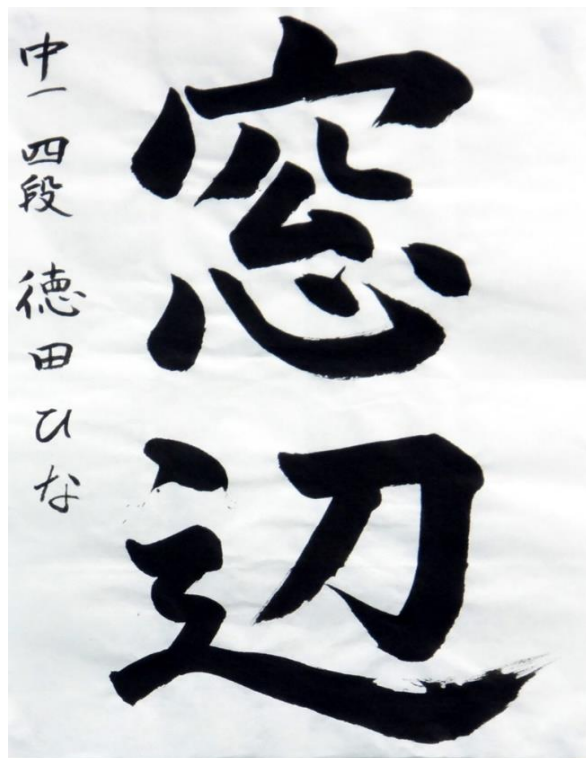 窓辺
中一 四段 徳田ひな